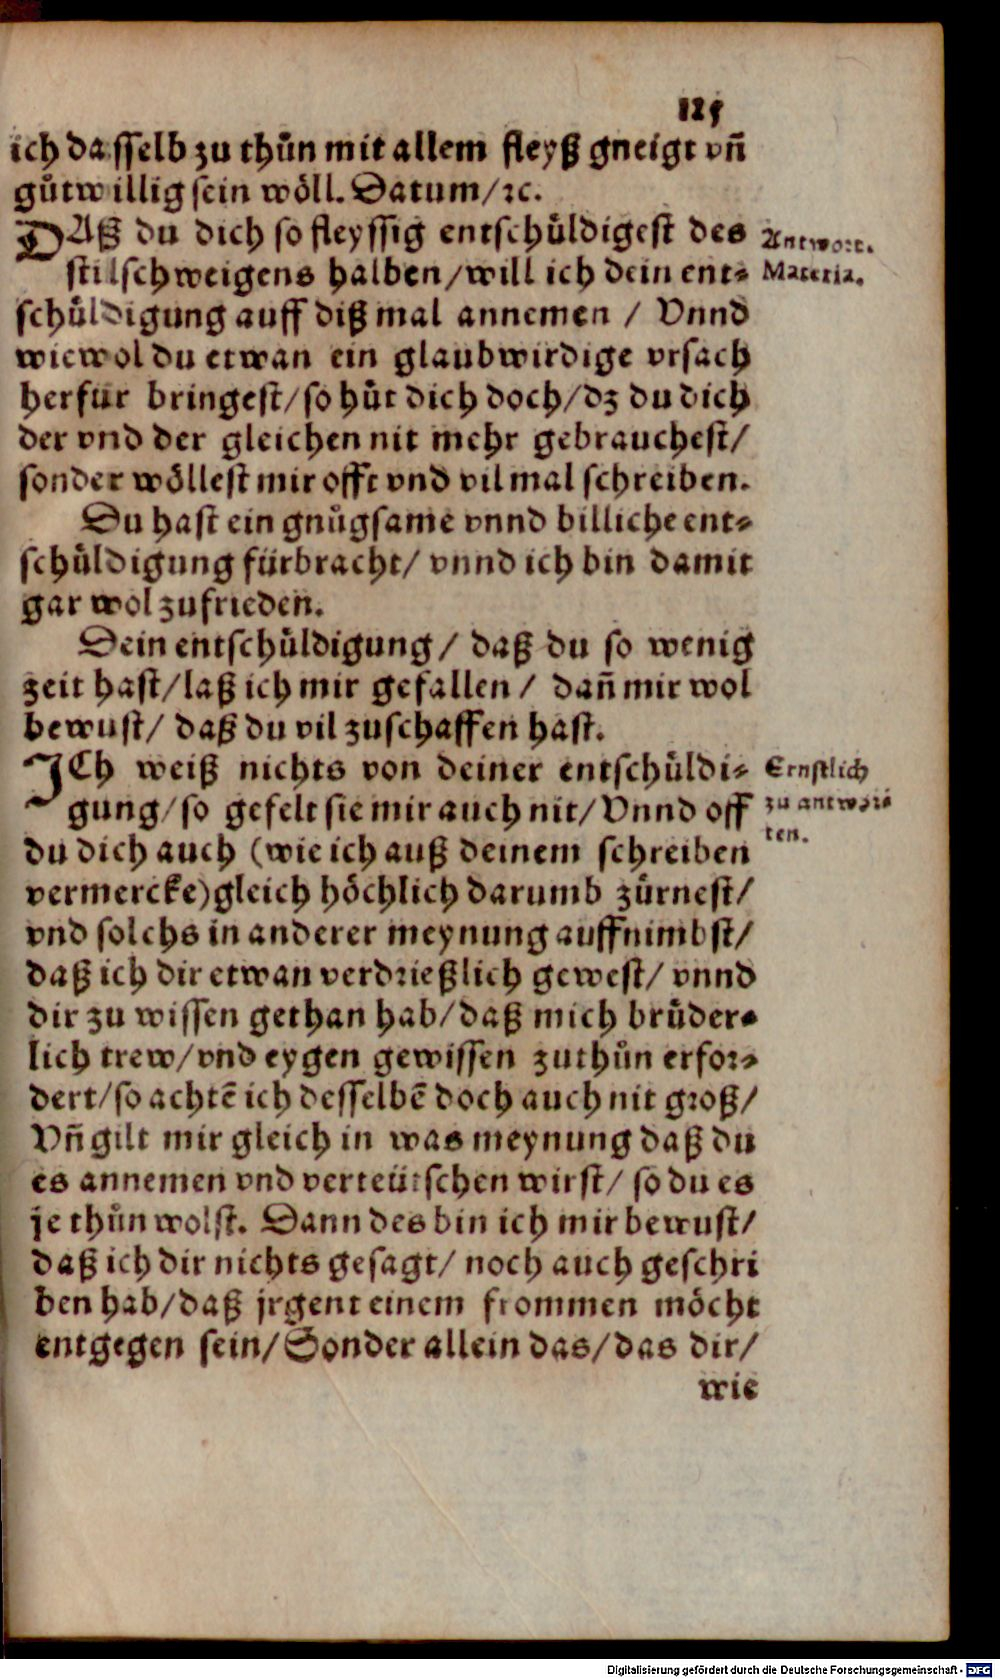 125
ich dasselb zu thůn mit allem fleyß gneigt vñ
gůtwillig sein wöll. Datum/ꝛc.
DAß du dich so fleyssig entschüldigest des
Antwort.
stilschweigens halben/will ich dein ent-
Materia.
schüldigung auff diß mal annemen / Vnnd
wiewol du etwan ein glaubwirdige vrsach
herfür bringest/so hüt dich doch/dz du dich
der vnd der gleichen nit mehr gebrauchest/
sonder wöllest mir offt vnd vil mal schreiben.
Du hast ein gnůgsame vnnd billiche ent-
schüldigung fürbracht/ vnnd ich bin damit
gar wol zufrieden.
Dein entschüldigung/ daß du so wenig
zeit hast/laß ich mir gefallen/ dañ mir wol
bewust/ daß du vil zuschaffen hast.
ICh weiß nichts von deiner entschüldi-
Ernstlich
gung/so gefelt sie mir auch nit/Vnnd off
zu antwor-
du dich auch (wie ich auß deinem schreiben
ten.
vermercke)gleich höchlich darumb zürnest/
vnd solchs in anderer meynung auffnimbst/
daß ich dir etwan verdrießlich gewest/ vnnd
dir zu wissen gethan hab/daß mich brüder-
lich trew/vnd eygen gewissen zuthůn erfor-
dert/so achtē ich desselbē doch auch nit groß/
Vñ gilt mir gleich in was meynung daß du
es annemen vnd verteütschen wirst/ so du es
je thůn wolst. Dann des bin ich mir bewust/
daß ich dir nichts gesagt/ noch auch geschri
ben hab/daß jrgent einem frommen möcht
entgegen sein/Sonder allein das/das dir/
wie
Digitalisierung gefördert durch die Deutsche Forschungsgemeinschaft - DFG